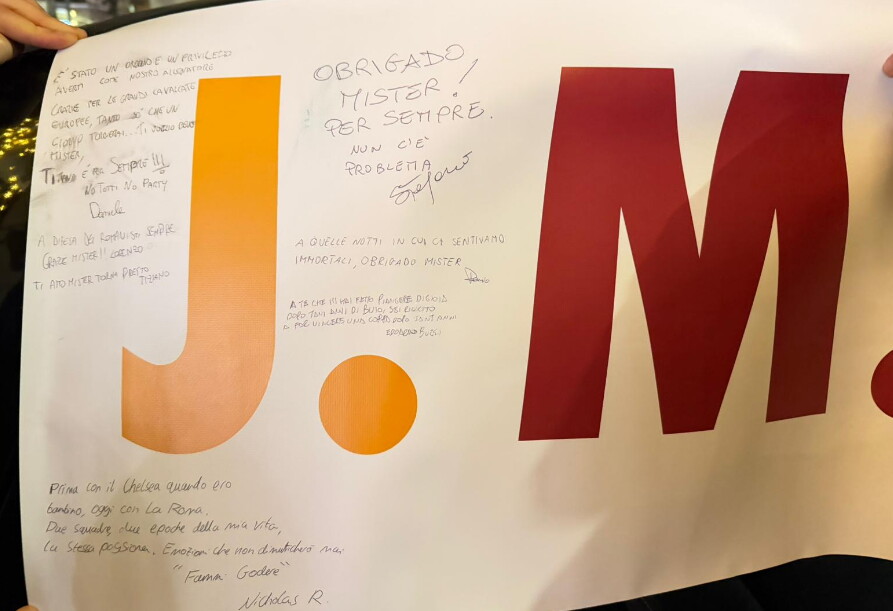 È STATO UN ONORE E UN PRIVILEGIO
AVERTI COME NOSTRO ALLENATORE
GRAZIE PER LE GRANDI CAVALCATE
EUROPEE, CHE UN
GIORNO
MISTER,
TI È PER SEMPRE !!!
NO TOTTI NO PARTY
Daniele
A DIFESA DEI ROMANISTI SEMPRE
GRAZIE MISTER!! LORENZO
TI AMO MISTER TORNA PRESTO
TIZIANO
J. M.
OBRIGADO
MISTER!
PER SEMPRE.
NON C'È
PROBLEMA
Stefano
A QUELLE NOTTI IN CUI CI SENTIVAMO
IMMORTALI, OBRIGADO MISTER
A TE CHE MI HAI FATTO PIANGERE DI GIOIA
DOPO TANI ANNI DI BUIO, SEI RIUSCITO
A FAR VINCERE UNA COPPA DOPO ANNI
Prima con il Chelsea quando ero
bambino, oggi con La Roma.
Due squadre, due epoche della mia vita,
la stessa posizione. Emozioni che non dimenticherò mai
"Fammi Godere"
Nicholas R.